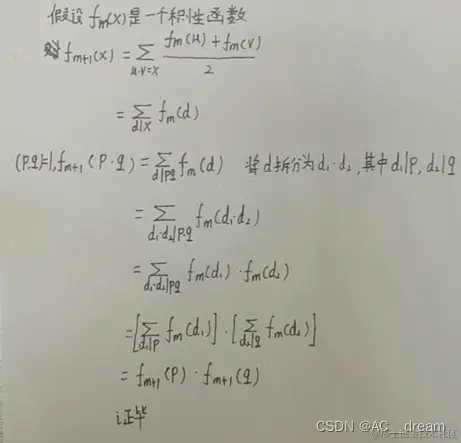 假设 fₘ(x) 是一个积性函数
fₘ₊₁(x) = ∑_{u·v=x} (fₘ(u)+fₘ(v))/2
= ∑_{d|x} fₘ(d)
(p,q)=1, fₘ₊₁(p·q) = ∑_{d|pq} fₘ(d) 将d拆分为d₁·d₂,其中d₁|p, d₂|q
= ∑_{d₁·d₂|p·q} fₘ(d₁·d₂)
= ∑_{d₁·d₂|pq} fₘ(d₁)·fₘ(d₂)
= [∑_{d₁|p} fₘ(d₁)]·[∑_{d₂|q} fₘ(d₂)]
= fₘ₊₁(p)·fₘ₊₁(q)
证毕
CSDN @AC__dream